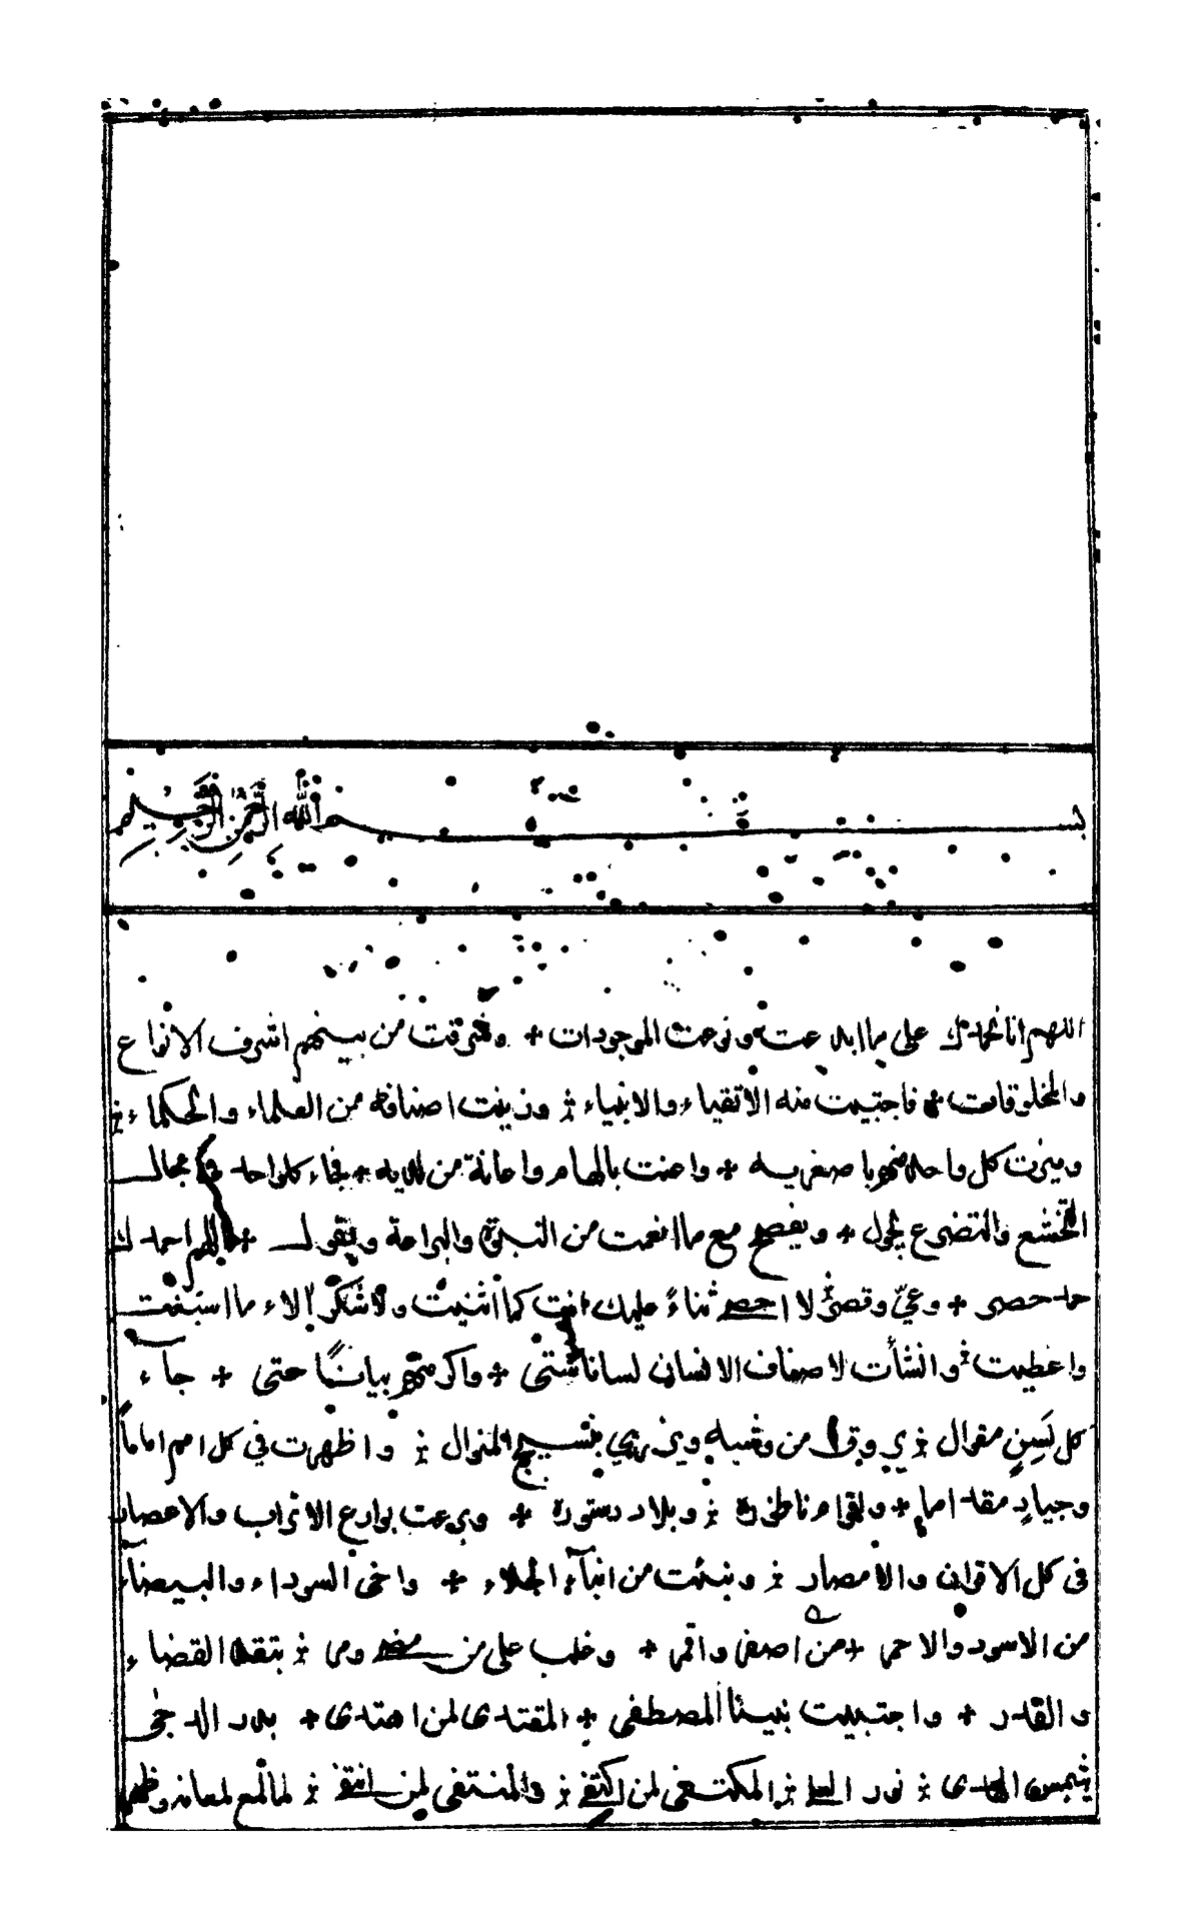 بسم الله الرحمن الرحيم
اللهم انا نحمدك على ما ابدعت ونوعت الموجودات + وشرفت من بينهم اشرف الانواع
والمخلوقات + فاجتبيت منه الاتقياء والانبياء ؛ وزينت اصنافه من العلماء والحكماء ؛
وميزت كل واحد منهم باصغريه + واعنت بالهام واعانة من لديه + فجاء كل واحد في مجال
التخشع والتضرع يجول + ويفصح مع ما انعمت من النبوة والبراعة ويقول + اللهم احمدك
حمد حصى + وعيّ وقصى لا احصى ثناءً عليك انت كما اثنيت ولا شكر آلاء ما اسبغت
واعطيت وانشأت لاصناف الانسان لسانا شتى + واكرمتهم بيانًا حتى + جاء
كل لسن مقوال ؛ من وشيه بنسيج المنوال ؛ واظهرت في كل امم اماماً
وجياد مقداما + ولقوام ناطورة ؛ وبلاد دستورة + وبدعت بوارع الاتراب والاعصار
في كل الاقران والامصار ؛ ونبئت من انباء الجلاء + واخى السوداء والبيضاء
من الاسود والاحمر + من اصفر واقمر + وغلب على من مضر ومن ؛ بتقد القضاء
والقدر + واجتبيت نبينا المصطفى + المقتدى لمن اهتدى + بدر الدجى
شمس الهدى ؛ نور ؛ المكتفى لمن اكتفى ؛ والمنتفى لمن انتفى ؛ لما لمع لمعانه وظهر